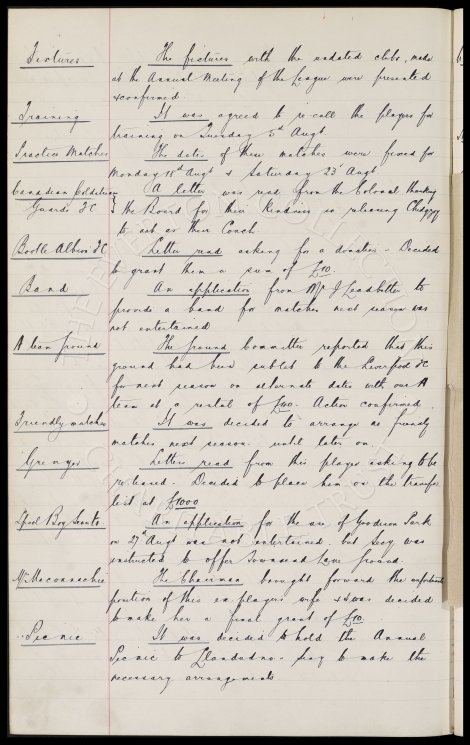 Fixtures The fixtures with the undated clubs, made
at the Annual Meeting of the League were presented
& confirmed
Training It was agreed to re-call the players for
training on Tuesday 5th Augt
Practice Matches The dates of these matches were fixed for
Monday 18th Augt & Saturday 23rd Augt
Canadian Coldstream A letter was read from the Colonel thanking
Guards FC the Board for their kindness in releasing
to act as their Coach
Bootle Albion FC Letter read asking for a donation - Decided
to grant them a sum of £10.
Band An application from Mr J Leadbetter to
provide a band for matches next season was
not entertained
A team ground The ground Committee reported that this
ground had been sublet to the Liverpool FC
for next season on alternate dates with our A
team at a rental of £40. Action confirmed
Friendly matches It was decided to arrange no friendly
matches next season until later on.
Grenyer Letter read from this player asking to be
released. Decided to place him on the transfer
list at £1000
Lpool Boy Scouts An application for the use of Goodison Park
on 27th Augt was not entertained but Secy was
instructed to offer Townsend Lane ground.
Mrs Maconnachie The Chairman brought forward the unfortunate
position of this ex players wife & it was decided
to make her a final grant of £10.
Picnic It was decided to hold the Annual
Picnic to Llandudno - Secy to make the
necessary arrangements